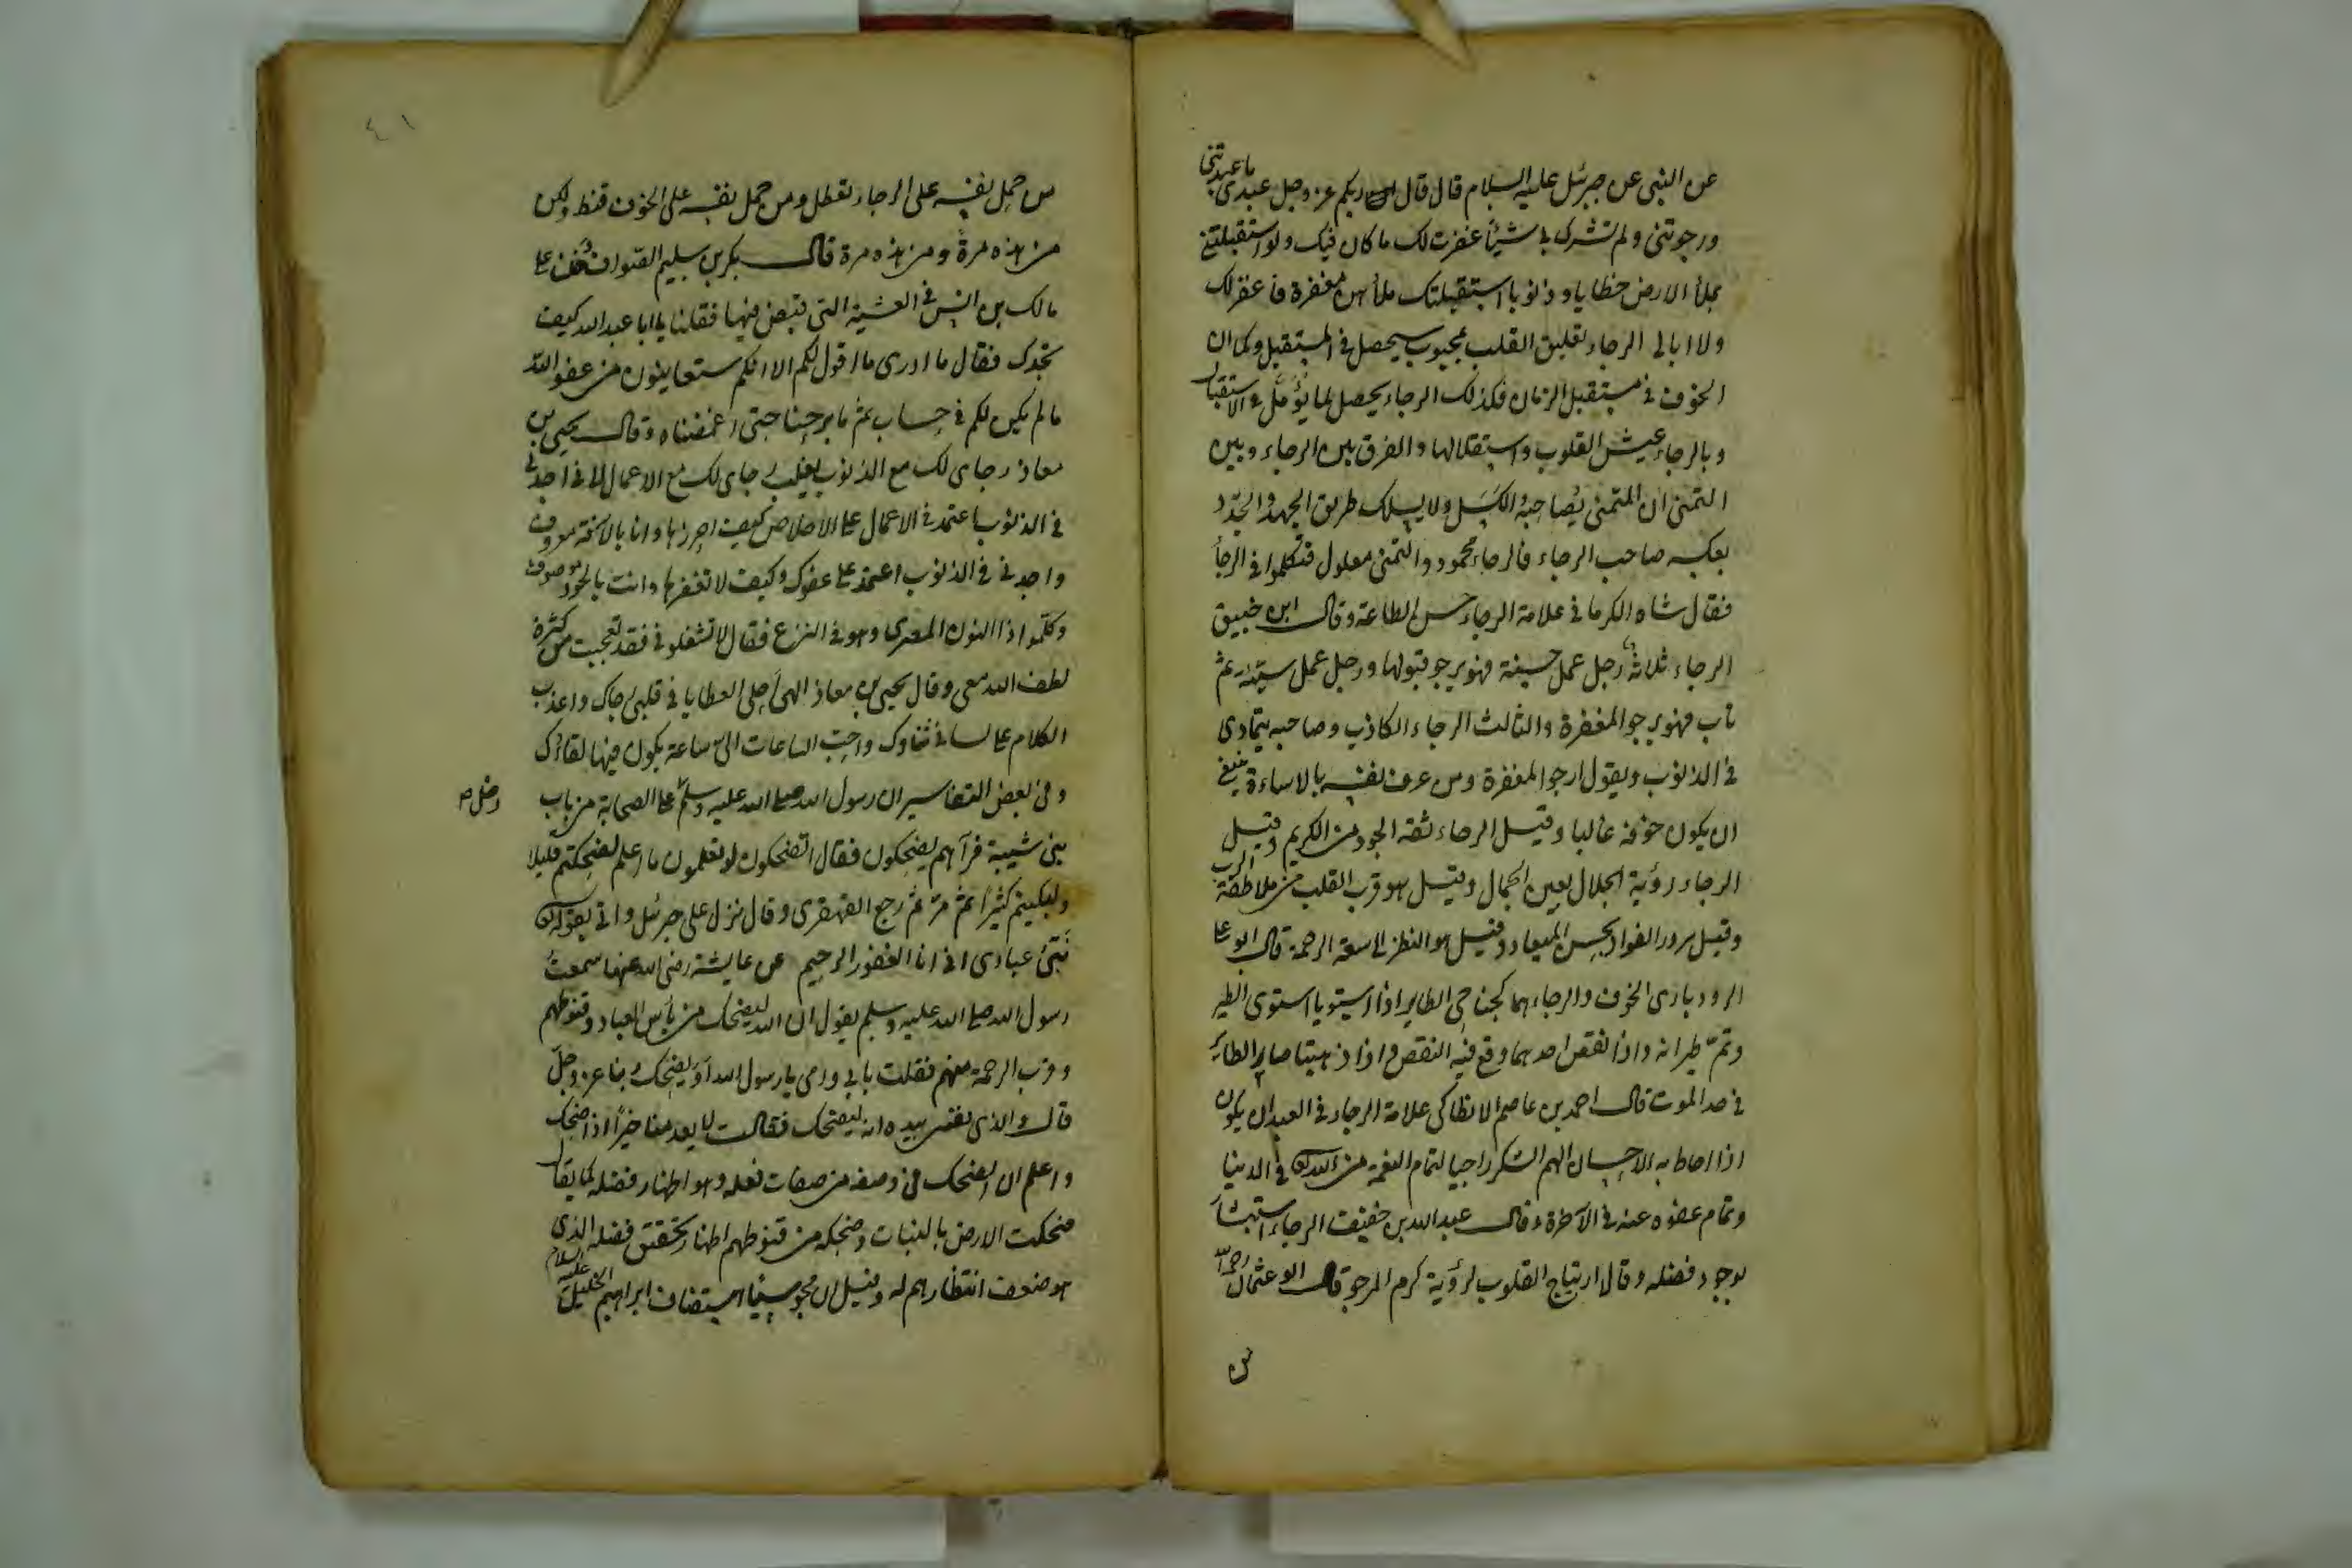 عن النبى عن جبرئل عليه السلام قال قال ربكم عز وجل عبدى ما عبدتنى
ورجوتنى ولم تشرك بى شيئا غفرت لك ما كان فيك ولو استقبلتنى
بملأ الارض خطايا وذنوبا استقبلتك بملأهن مغفرة فأغفر لك
ولا ابالى الرجاء تعليق القلب بمحبوب سيحصل فى المستقبل وكما ان
الخوف فى مستقبل الزمان فكذلك الرجاء يحصل لما يؤمل فى الاستقبال
وبالرجاء عيش القلوب واستقلالها والفرق بين الرجاء وبين
التمنى ان المتمنى يُصاحبه الكسل ولا يسلك طريق الجهد والجد و
بعكسه صاحب الرجاء فالرجاء محمود والتمنى معلول فتكلموا فى الرجأ
فقال شاه الكرمانى علامة الرجاء حسن الطاعة وقال ابن خبيق
الرجاء ثلاثة رجل عمل حسنة فهو يرجو قبولها ورجل عمل سيئة ثم
تاب فهو يرجو المغفرة والثالث الرجاء الكاذب وصاحبه يتمادى
فى الذنوب ويقول ارجو المغفرة ومن عرف نفسه بالاساءة ينبغى
ان يكون خوفه غالبا وقيل الرجاء ثقة الجود من الكريم وقيل
الرجاء رؤية الجلال بعين الجمال وقيل هو قرب القلب من ملاطفة الرب
وقيل سرور الفواد بحسن الميعاد وقيل هو النظر الى سعة الرحمة قال ابو على
الرودبارى الخوف والرجاء هما كجناحى الطاير اذا استويا استوى الطير
وتمّ طيرانه واذا نقص احدهما وقع فيه النقص واذا ذهبتا صار الطائر
فى حد الموت قال احمد بن عاصم الانطاكى علامة الرجاء فى العبد ان يكون
اذا احاط به الاحسان الهم الشكر راجيا لتمام النعمة من الله فى الدينا
وتمام عفوه عنه فى الآخرة وقال عبدالله بن خفيف الرجاء استبشار
بوجود فضله وقال ارتياح القلوب لرؤية كرم المرجو قال ابو عثمان
من
٤١
من حمل نفسه على الرجاء تعطل ومن حمل نفسه على الخوف قنط ولكن
من هذه مرة ومن هذه مرة قال بكر بن سليم الصواف دخلت على
مالك بن انس فى العشية التى قبض فيها فقلنا يا ابا عبدالله كيف
تجدك فقال ما ادرى ما اقول لكم الا انكم ستعاينون من عفو الله
مالم يكن لكم فى حساب ثم ما برحنا حتى اغمضناه وقال يحيى بن
معاذ رجاى لك مع الذنوب يغلب رجاى لك مع الاعمال لانى اجدنى
فى الذنوب اعتمد فى الاعمال على الاخلاص كيف احرزها وانا بالآفة معروف
واجدنى فى الذنوب اعتمد على عفوك وكيف لا تغفرها وانت بالجود موصوف
وكلّموا ذا النون المصرى وهو فى النزع فقال لا تشغلونى فقد تعجبت من كثرة
لطف الله معى وقال يحيى بن معاذ الهى احلى العطايا فى قلبى رجاك واعذب
الكلام على لسانى ثناوك واحبّ الساعات الىّ ساعة يكون فيها لقاؤك
وفى بعض التفاسير ان رسول الله صلى الله عليه وسلم على الصحابة من باب
دخل ص
بنى شيبة فرآهم يضحكون فقال اتضحكون لو تعلمون ما اعلم لضحكتم قليلا
ولبكيتم كثيرا ثم مرّ ثم رجع القهقرى وقال نزل على جبرئل واتى بقوله
نَبّئ عبادى انى انا الغفور الرحيم عن عايشة رضى الله عنها سمعتُ
رسول الله صلى الله عليه وسلم يقول ان الله ليضحك من يأس العباد وقنوطهم
وقرب الرحمة منهم فقلت بابى وامى يا رسول الله أو يضحك ربنا عز وجلّ
قال والذى نفسى بيده انه ليضحك فقالت لا يعدمنا خيرًا اذا ضحك
واعلم ان الضحك فى وصفه من صفات فعله وهو اظهار فضله كما يقال
ضحكت الارض بالنبات وضحكه من قنوطهم اظهار تحقق فضله الذى
هو ضعف انتظارهم له وقيل ان مجوسيًا استضاف ابراهيم الخليل عليه السلام